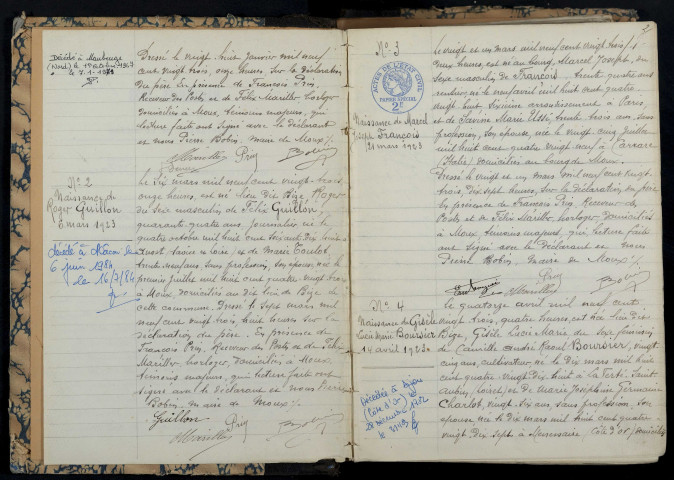 Décédé à Maubeuge
(Nord) le
le 7.1.
Dressé le vingt huit janvier mil neuf
cent vingt trois, onze heures sur la déclaration
du père en présence de François Pry,
Receveur des Postes et de Félix Marillo horloger
domiciliés à Moux, témoins majeurs, qui
lecture faite ont signé avec le déclarant
et nous Pierre Bobin, maire de Moux
Pry
Bobin
N° 2
Naissance de
Roger Guillon
6 mars 1923
Décédé à
6 juin 1984
le
Le Six mars mil neuf cent vingt trois
onze heures, est né lieu dit Bize Roger
du sexe masculin, de Félix Guillon
quarante quatre ans, journalier né le
quatre octobre mil huit cent soixante dix
et de Marie
trente neuf ans, sans profession, son épouse, née le
premier juillet mil huit cent quatre vingt trois
à Moux, domiciliés au dit lieu de Bize de
cette commune. Dressé le sept mars, mil
neuf cent vingt trois huit heures sur la
déclaration du père. En présence de
François Pry, Receveur des Postes et de Félix
Marillo horloger domiciliés à Moux
témoins majeurs, qui lecture faite ont
signé avec le déclarant et nous Pierre
Bobin, maire de Moux
Guillon
Pry
Bobin
N° 3
ACTES DE L'ÉTAT CIVIL
PAPIER SPÉCIAL
2F
Naissance de Marcel
Joseph François
21 mars 1923
Le vingt et un mars mil neuf cent vingt trois,
heures, est né au bourg, Marcel Joseph, du
sexe masculin de François, trente quatre ans
né le neuf avril mil huit cent quatre
vingt huit sixième arrondissement à Paris,
et de Marie Ussi, trente trois ans, sans
profession, son épouse, née le vingt cinq juillet
mil huit cent quatre vingt neuf à Carrare
(Italie) domiciliés au bourg de Moux.
Dressé le vingt et un mars mil neuf cent vingt
trois, dix sept heures, sur la déclaration du père
en présence de François Pry, Receveur des
Postes et de Félix Marillo, horloger, domiciliés
à Moux témoins majeurs, qui lecture faite
ont signé avec le déclarant et nous
Pierre Bobin, maire de Moux
Pry
Bobin
N° 4
Naissance de Gisèle
Lucie Marie Boursier
14 avril 1923
Décédée à Dijon
(Côte d'Or) le
Le quatorze avril mil neuf cent
vingt trois, quatre heures, est née lieu dit
Bize Gisèle Lucie Marie du sexe féminin
de Camille André Raoul Boursier, vingt
cinq ans, cultivateur né le dix mars mil huit
cent quatre vingt dix huit à la Ferté Saint
Aubin (Loiret) et de Marie Joséphine Germaine
Charlot, vingt six ans, sans profession, son
épouse née le dix mars mil huit cent quatre
vingt dix sept à (Côte d'Or) domiciliés